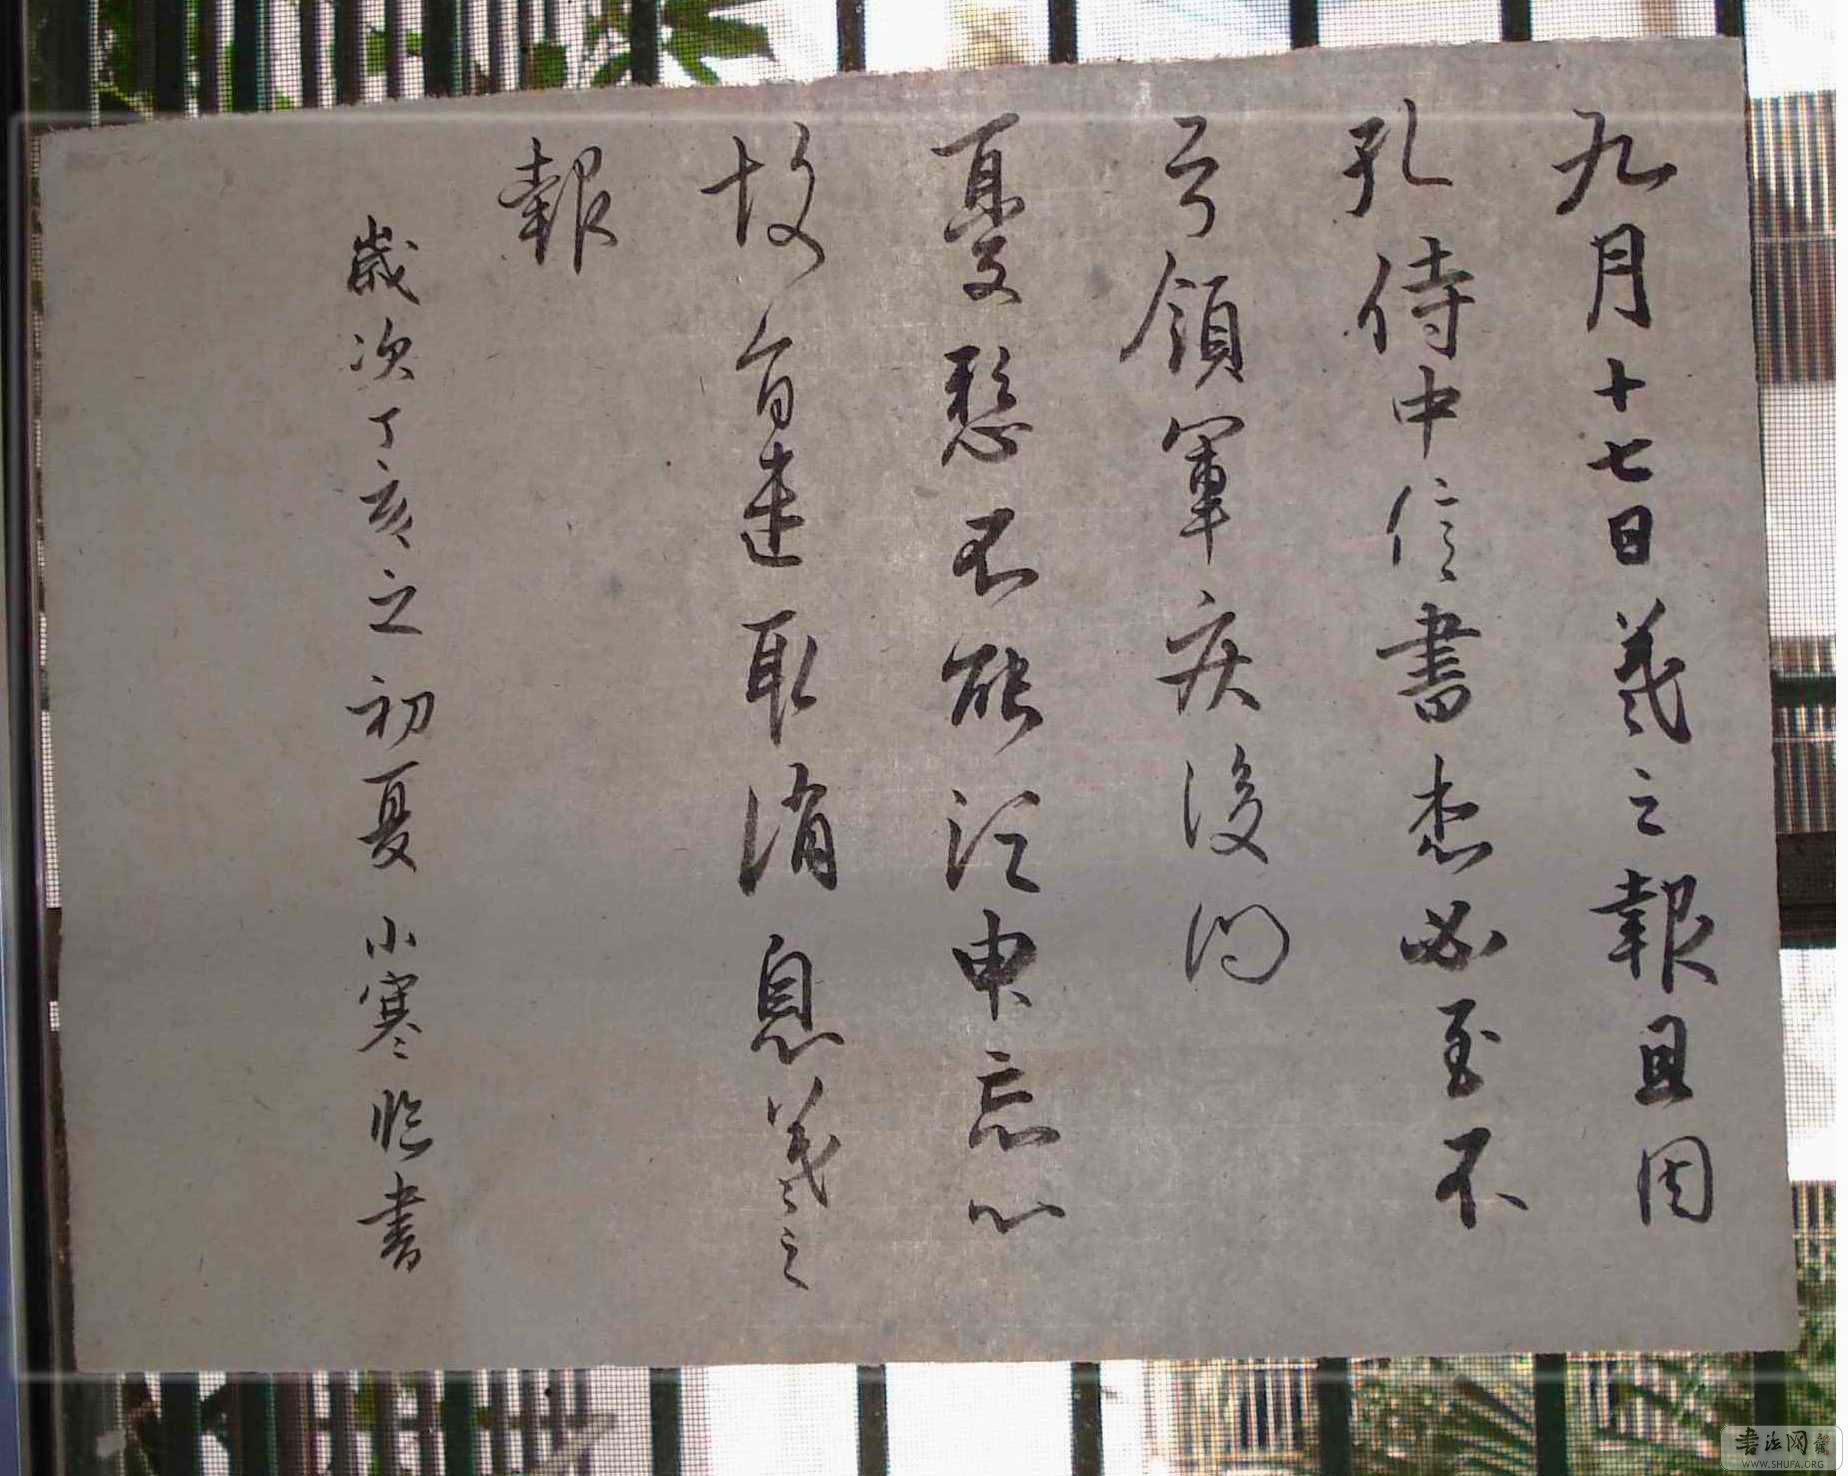 九月十七日羲之報且因
孔侍中信書想必至不
知領軍疾後問
憂懸不能須臾忘心
故旨遣取消息羲之
報
歲次丁亥之初夏 小寒臨書
書法网
WWW.SHUFA.ORG